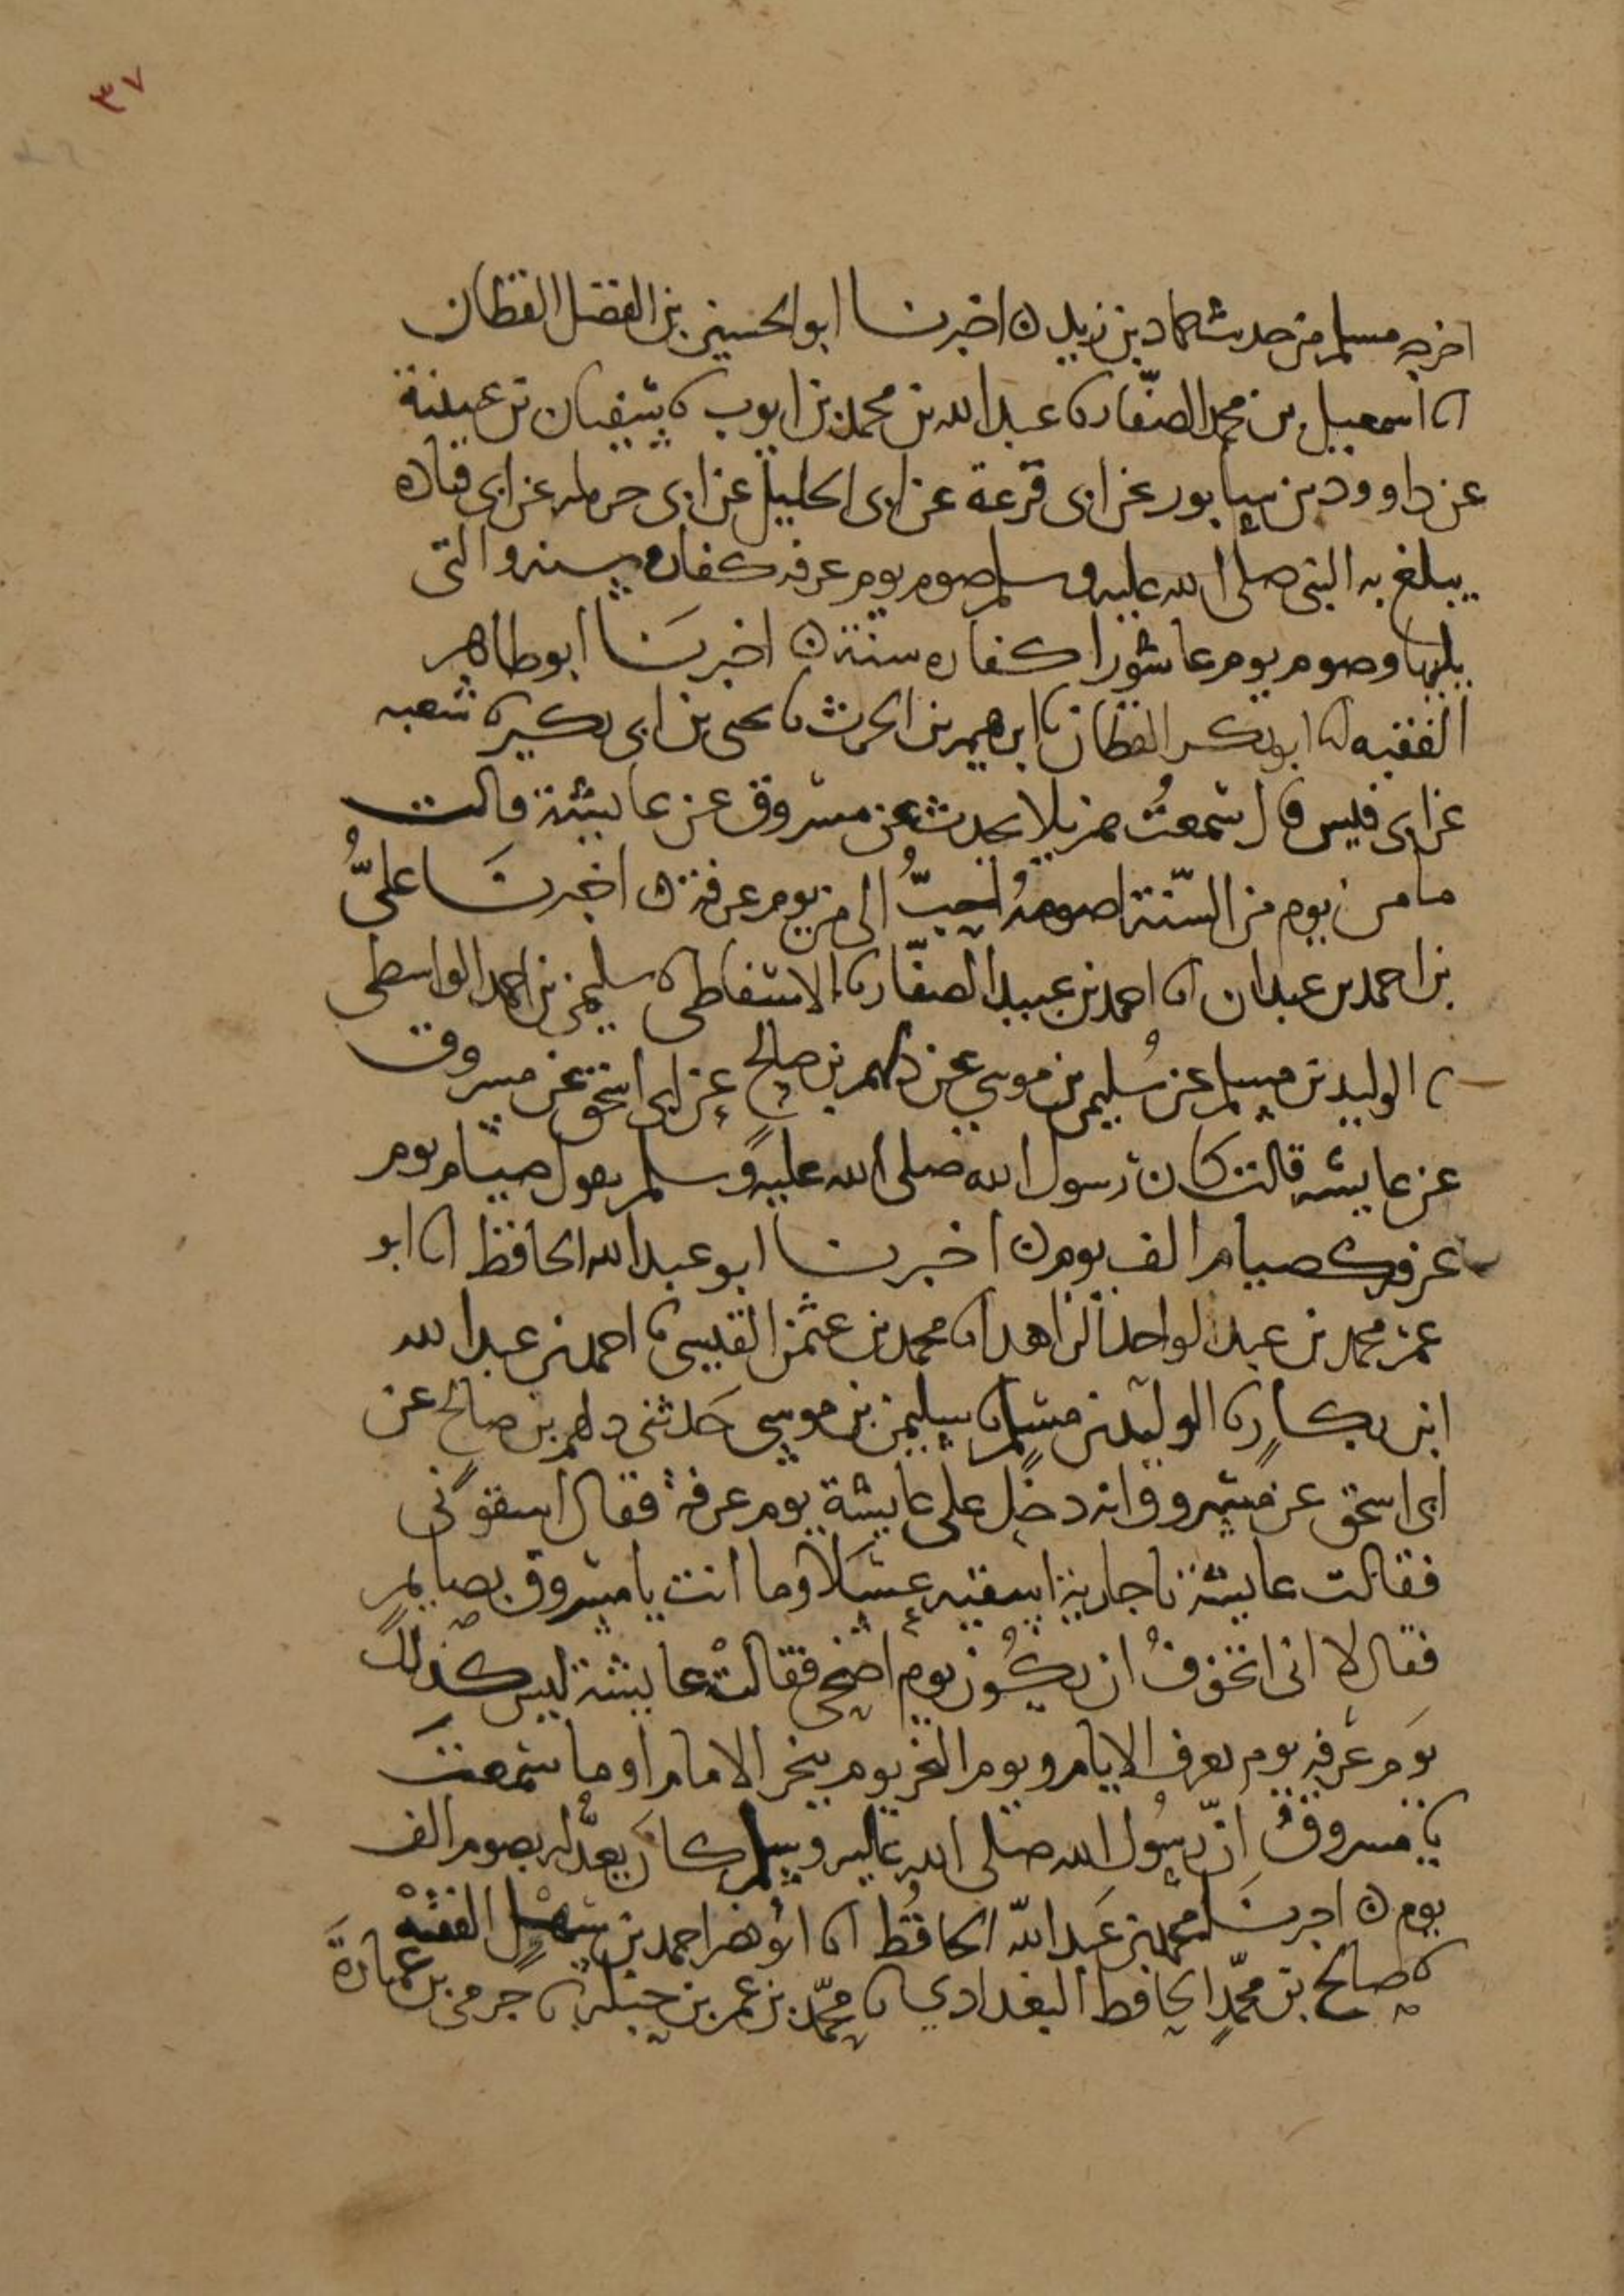 ٣٧
اخرجه مسلم من حديث حماد بن زيد ٥ اخبرنا ابو الحسين بن الفضل القطان
انا اسمعيل بن محمد الصفار نا عبد الله بن محمد بن ايوب نا سفيان بن عيينة
عن داوود بن سابور عن ابى قزعة عن ابى الخليل عن ابى حرمله عن ابى قتاده
يبلغ به النبى صلى الله عليه وسلم صوم يوم عرفه كفاره سنه والتى
يليها وصوم يوم عاشورا كفاره سنة ٥ اخبرنا ابو طاهر
الفقيه انا ابو بكر القطان نا ابرهيم بن الحرث نا يحيى بن ابى بكير نا شعبه
عن ابى قيس قال سمعت هزيلا يحدث عن مسروق عن عايشة قالت
ما من يوم من السّنة اصومهُ احبّ الى من يوم عرفة ٥ اخبرنَا علىُّ
بن احمد بن عبدان انا احمد بن عبيد الصفّار نا الاسفاطى نا سليمن بن احمد الواسطى
نا الوليد بن مسلم عن سُليمن بن موسي عن دلهم بن صالح عن ابى اسحق عن مسروق
عن عايشه قالت كان رسول الله صلى الله عليه وسلم يقول صيام يوم
عرفه كصيام الف يوم ٥ اخبرنا ابو عبد الله الحافظ انا ابو
عمر محمد بن عبد الواحد الزاهد نا محمد بن عثمن القيسى نا احمد بن عبد الله
ابن بكار نا الوليد بن مسلم نا سليمن بن موسى حَدثنى دلهم بن صالح عن
ابى اسحق عن مسروق انه دخل على عايشة يوم عرفة فقال اسقونى
فقالت عايشة يا جارية اسقيه عسلا وما انت يا مسروق بصايم
فقال لا انى اتخوفُ ان يكُون يوم اضحى فقالت عايشة ليس كذلك
يوم عرفه يوم يعرف الامام ويوم النحر يوم ينحر الامام اوما سمعتَ
يا مسروقُ انّ رسُول الله صلى الله عليه وسلم كان يعدّله بصوم الف
يوم ٥ اخبرنَا محمد بن عَبد اللّه الحافظ انا ابو نصر احمد بن سهل الفقيه
نا صالح بن محمّد الحافظ البغدادي نا محمّد بن عمر بن جبلة نا حرمى بن عمارة